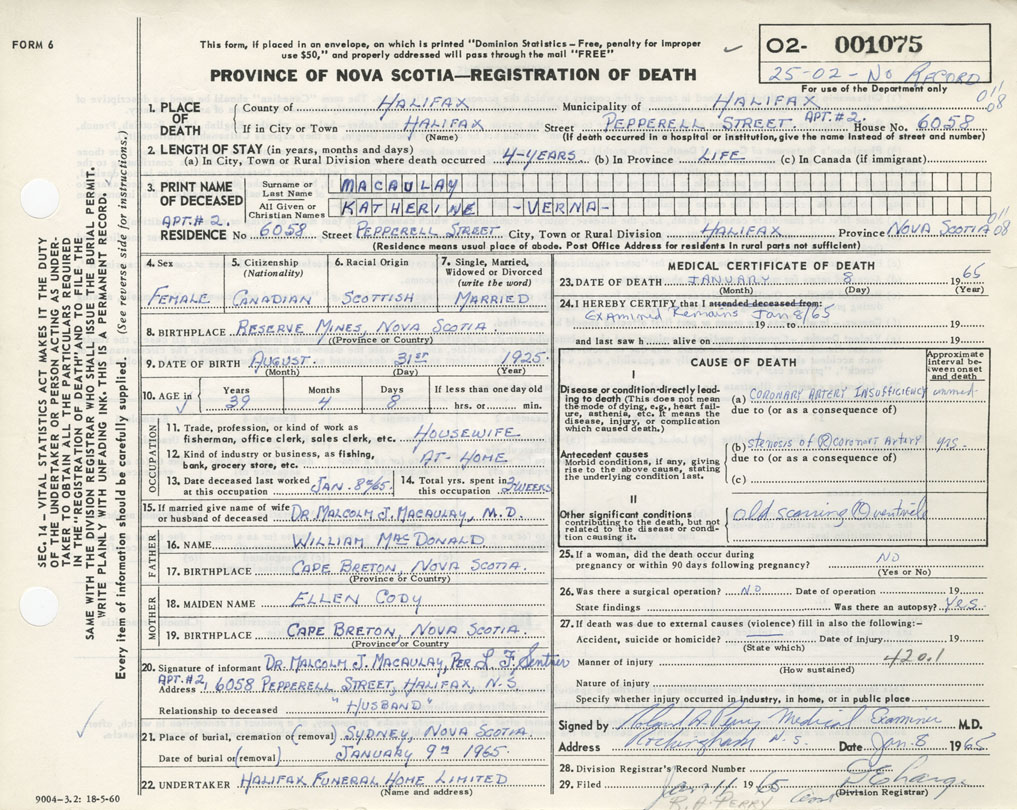 FORM 6
This form, if placed in an envelope, on which is printed "Dominion Statistics—Free, penalty for improper
use $50," and properly addressed will pass through the mail "FREE"
PROVINCE OF NOVA SCOTIA—REGISTRATION OF DEATH
02- 001075
25-02-NO RECORD
For use of the Department only
011
08
SEC. 14 – VITAL STATISTICS ACT MAKES IT THE DUTY
OF THE UNDERTAKER OR PERSON ACTING AS UNDER-
TAKER TO OBTAIN ALL THE PARTICULARS REQUIRED
IN THE "REGISTRATION OF DEATH" AND TO FILE THE
SAME WITH THE DIVISION REGISTRAR WHO SHALL ISSUE THE BURIAL PERMIT.
WRITE PLAINLY WITH UNFADING INK. THIS IS A PERMANENT RECORD.
Every item of information should be carefully supplied. (See reverse side for instructions.)
1. PLACE OF DEATH
County of HALIFAX Municipality of HALIFAX
If in City or Town HALIFAX (Name) Street PEPPERELL STREET. APT.#2. House No. 6058
(If death occurred in a hospital or institution, give the name instead of street and number)
2. LENGTH OF STAY (in years, months and days)
(a) In City, Town or Rural Division where death occurred 4-YEARS (b) In Province LIFE (c) In Canada (if immigrant)
3. PRINT NAME OF DECEASED
Surname or Last Name MACAULAY
All Given or Christian Names KATHERINE -VERNA-
APT.#2.
RESIDENCE No 6058 Street PEPPERELL STREET City, Town or Rural Division HALIFAX Province NOVA SCOTIA
011
08
(Residence means usual place of abode. Post Office Address for residents in rural parts not sufficient)
4. Sex FEMALE
5. Citizenship (Nationality) CANADIAN
6. Racial Origin SCOTTISH
7. Single, Married, Widowed or Divorced (write the word) MARRIED
8. BIRTHPLACE RESERVE MINES, NOVA SCOTIA.
(Province or Country)
9. DATE OF BIRTH AUGUST. 31ST 1925.
(Month) (Day) (Year)
10. AGE in Years 39 Months 4 Days 8 If less than one day old hrs. or min.
OCCUPATION
11. Trade, profession, or kind of work as fisherman, office clerk, sales clerk, etc. HOUSEWIFE
12. Kind of industry or business, as fishing, bank, grocery store, etc. AT-HOME
13. Date deceased last worked at this occupation JAN. 8TH/65. 14. Total yrs. spent in this occupation 2 WEEKS
15. If married give name of wife or husband of deceased DR MALCOLM J. MACAULAY, M.D.
FATHER
16. NAME WILLIAM MACDONALD
17. BIRTHPLACE CAPE BRETON, NOVA SCOTIA.
(Province or Country)
MOTHER
18. MAIDEN NAME ELLEN CODY
19. BIRTHPLACE CAPE BRETON, NOVA SCOTIA.
(Province or Country)
20. Signature of informant DR. MALCOLM J. MACAULAY, PER L. F.
APT.#2
Address 6058 PEPPERELL STREET, HALIFAX, N.S.
Relationship to deceased "HUSBAND"
21. Place of burial, cremation or (removal) SYDNEY, NOVA SCOTIA.
Date of burial or (removal) JANUARY 9TH 1965.
22. UNDERTAKER HALIFAX FUNERAL HOME LIMITED
(Name and address)
9004—3.2: 18-5-60
MEDICAL CERTIFICATE OF DEATH
23. DATE OF DEATH JANUARY 8 1965
(Month) (Day) (Year)
24. I HEREBY CERTIFY that I attended deceased from:
Examined Remains Jan 8/65
19 to 19
and last saw h alive on 19
CAUSE OF DEATH
Approximate interval between onset and death
I
Disease or condition directly leading to death (This does not mean the mode of dying, e.g., heart failure, asthenia, etc. It means the disease, injury, or complication which caused death.)
(a) CORONARY ARTERY INSUFFICIENCY immed.
due to (or as a consequence of)
Antecedent causes
Morbid conditions, if any, giving rise to the above cause, stating the underlying condition last.
(b) stenosis of (R) coronary Artery yrs.
due to (or as a consequence of)
(c)
II
Other significant conditions contributing to the death, but not related to the disease or condition causing it.
old scarring (L) ventricle
25. If a woman, did the death occur during pregnancy or within 90 days following pregnancy? NO
(Yes or No)
26. Was there a surgical operation? NO Date of operation 19
State findings Was there an autopsy? Yes
27. If death was due to external causes (violence) fill in also the following:-
Accident, suicide or homicide? Date of injury 19
(State which)
Manner of injury 420.1
(How sustained)
Nature of injury
Specify whether injury occurred in industry, in home, or in public place
Signed by Roland A. Perry Medical Examiner M.D.
Address Rockingham N.S. Date Jan. 8 1965
28. Division Registrar's Record Number
29. Filed Jan 11 1965
(Division Registrar)
R. A. PERRY